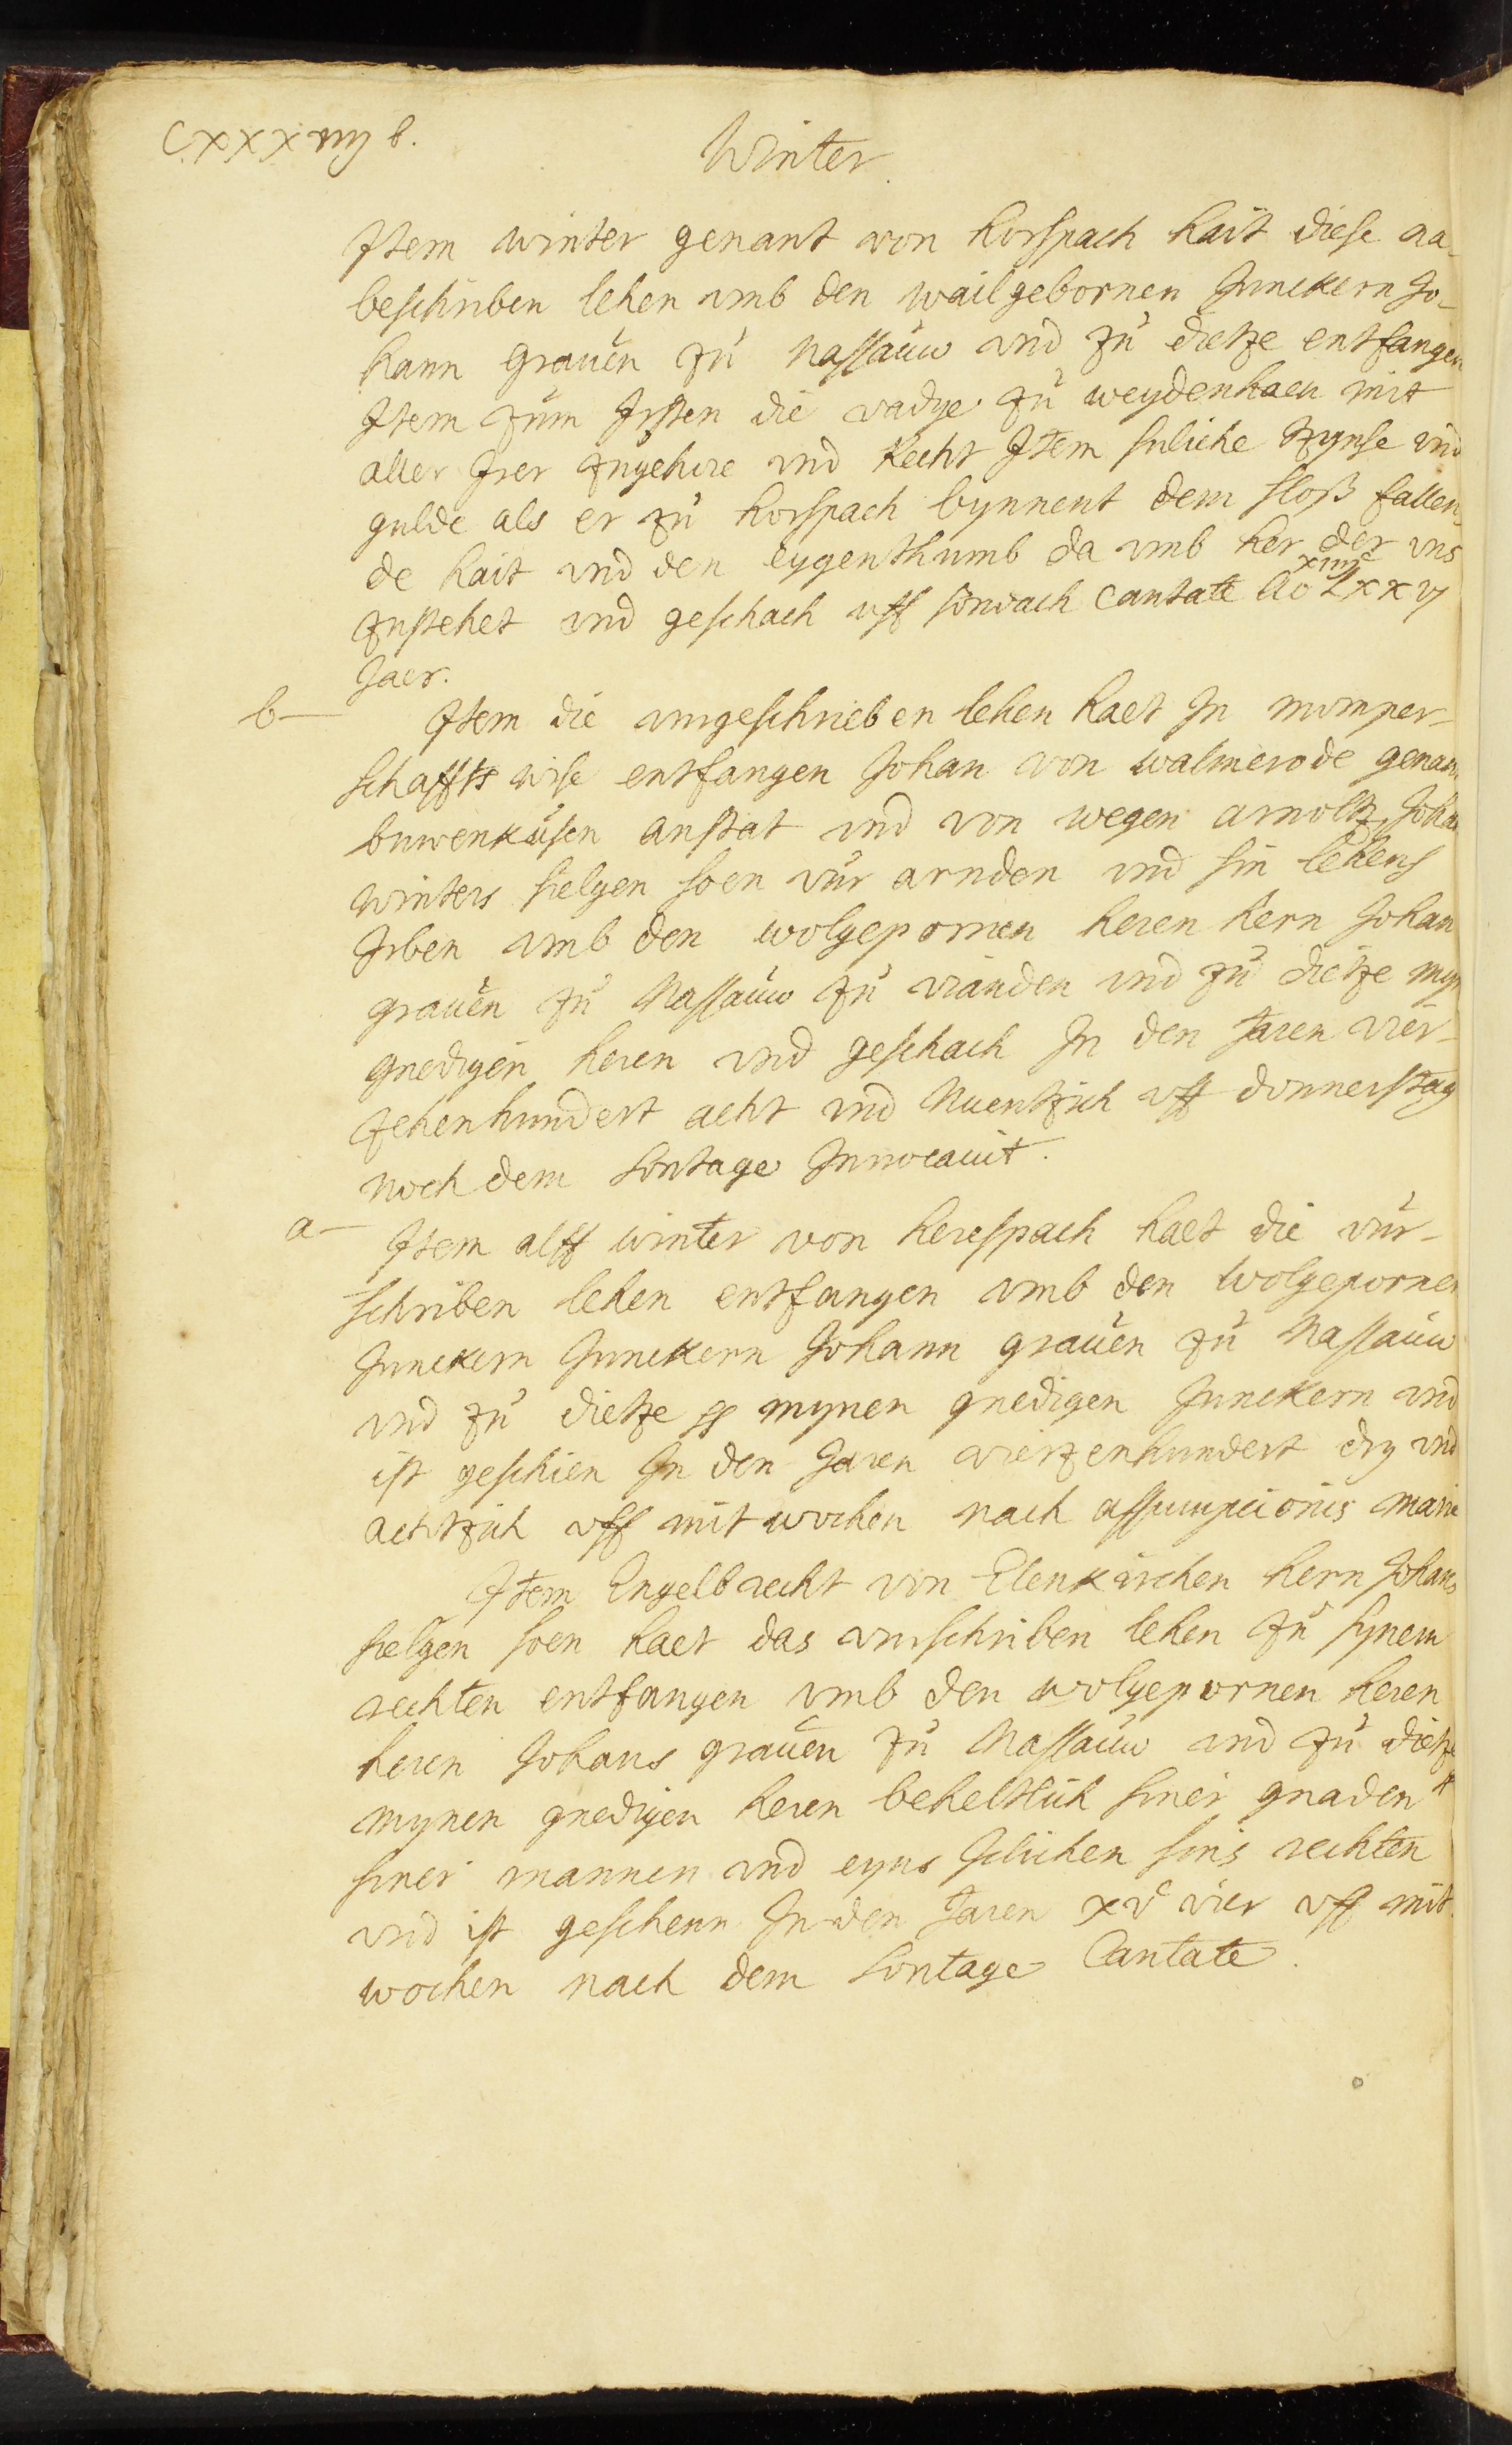 CXXXVIIJ b.
Winter
Jtem winter genant von horspach hait diese na-
beschriben lehen vmb den wailgebornen Junckern Jo-
hann grauen zu Nassauw vnd zu dietze entfangen
Jtem zum Jrsten die vadye zu weydenhaen mit
aller Jrer zugehore vnd Recht Jtem suliche tzynse vnd
gulde als er zu horspach bynnent dem sloß fallen
de hait vnd den eygenthumb da vmb her der vns
zustehet vnd geschach vff sondach Cantate Ao xiiijc Lxxvj
Jaer.
b— Jtem die vurgeschrieben lehen haet Jn momper-
schaffts wise entfangen Johan von walmerode genant
buwenkusen anstat vnd von wegen arnoltz Johan
winters sielgen soen vur arnden vnd sin lehens
Jrben vmb den wolgepornen heren hern Johan
grauen zu Nassauw zu vianden vnd zu dietze myn
gnedigen heren vnd geschach Jn den Jaren vier-
zehenhundert acht vnd Nuentzich vff donnerstag
noch dem Sontage Jnuocauit.
a— Jtem alff winter von herespach haet die vur-
schriben lehen entfangen vmb den wolgepornen
Junckern Junckern Johann grauen zu Nassauw
vnd zu dietze mynen gnedigen Junckern vnd
ist geschien Jn den Jaren viertzenhundert dry vnd
achtzich vff mitwochen nach assumpcionis marie
Jtem Engelbrecht von Elenkirchen hern Johans
sielgen soen haet das vurschriben lehen zu synem
rechten entfangen vmb den wolgepornen heren
heren Johans grauen zu Nassauw vnd zu dietze
mynen gnedigen heren beheltlich siner gnaden
siner mannen vnd eyns Jclichen sins rechten
vnd ist geschenn Jn den Jaren xvc vier vff mit
wochen nach dem Sontage Cantate.